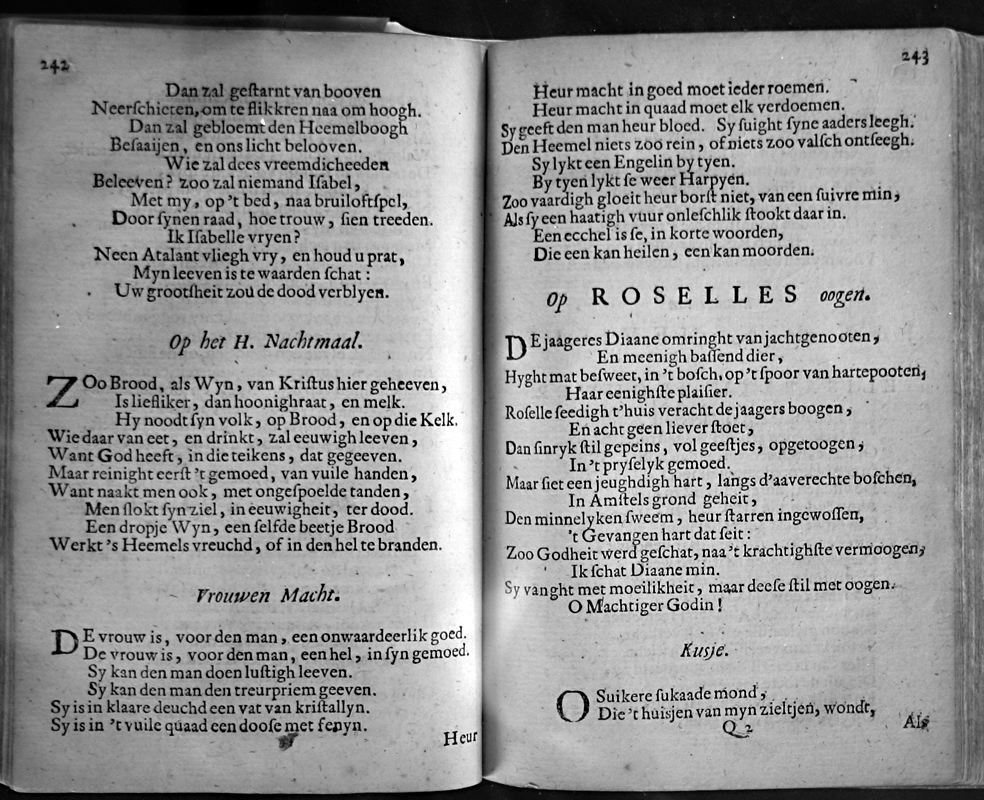 242
Dan zal geſtarnt van booven
Neerſchieten, om te flikkren naa om hoogh.
Dan zal gebloemt den Heemelboogh
Beſaaijen, en ons licht belooven.
Wie zal dees vreemdicheeden
Beleeven? zoo zal niemand Iſabel,
Met my, op 't bed, naa bruiloftſpel,
Door ſynen raad, hoe trouw, ſien treeden.
Ik Iſabelle vryen?
Neen Atalant vliegh vry, en houd u prat,
Myn leeven is te waarden ſchat:
Uw grootſheit zou de dood verblyen.
Op het H. Nachtmaal.
ZOo Brood, als Wyn, van Kriſtus hier geheeven,
Is liefliker, dan hoonighraat, en melk.
Hy noodt ſyn volk, op Brood, en op die Kelk.
Wie daar van eet, en drinkt, zal eeuwigh leeven,
Want God heeft, in die teikens, dat gegeven.
Maar reinight eerſt 't gemoed, van vuile handen,
Want naakt men ook, met ongeſpoelde tanden,
Men ſlokt ſyn ziel, in eeuwigheit, ter dood.
Een dropje Wyn, een ſelfde beetje Brood
Werkt 's Heemels vreuchd, of in den hel te branden.
Vrouwen Macht.
DE vrouw is, voor den man, een onwaardeerlik goed.
De vrouw is, voor den man, een hel, in ſyn gemoed.
Sy kan den man doen luſtigh leeven.
Sy kan den man den treurpriem geeven.
Sy is in klaare deuchd een vat van kriſtallyn.
Sy is in 't vuile quaad een dooſe met fenyn.
Heur
243
Heur macht in goed moet ieder roemen.
Heur macht in quaad moet elk verdoemen.
Sy geeft den man heur bloed. Sy ſuight ſyne aaders leegh.
Den Heemel niets zoo rein, of niets zoo valſch ontſeegh.
Sy lykt een Engelin by tyen.
By tyen lykt ſe weer Harpyen.
Zoo vaardigh gloeit heur borſt niet, van een ſuivre min,
Als ſy een haatigh vuur onleſchlik ſtookt daar in.
Een ecchel is ſe, in korte woorden,
Die een kan heilen, een kan moorden.
Op ROSELLES oogen.
DE jaageres Diaane omringht van jachtgenooten,
En meenigh baſſend dier,
Hyght mat beſweet, in 't boſch, op 't ſpoor van hartepooten,
Haar eenighſte plaiſier.
Roſelle ſeedigh t'huis veracht de jaagers boogen,
En acht geen liever ſtoet,
Dan ſinryk ſtil gepeins, vol geeſtjes, opgetoogen,
In 't pryſelyk gemoed.
Maar ſiet een jeughdigh hart, langs d'aaverechte boſchen,
In Amſtels grond geheit,
Den minnelyken ſweem, heur ſtarren ingewoſſen,
't Gevangen hart dat ſeit:
Zoo Godheit werd geſchat, naa 't krachtighſte vermoogen,
Ik ſchat Diaane min.
Sy vanght met moeilikheit, maar deeſe ſtil met oogen.
O Machtiger Godin!
Kusje.
O Suikere ſukaade mond,
Die 't huisjen van myn zieltjen, wondt,
Q 2
Als